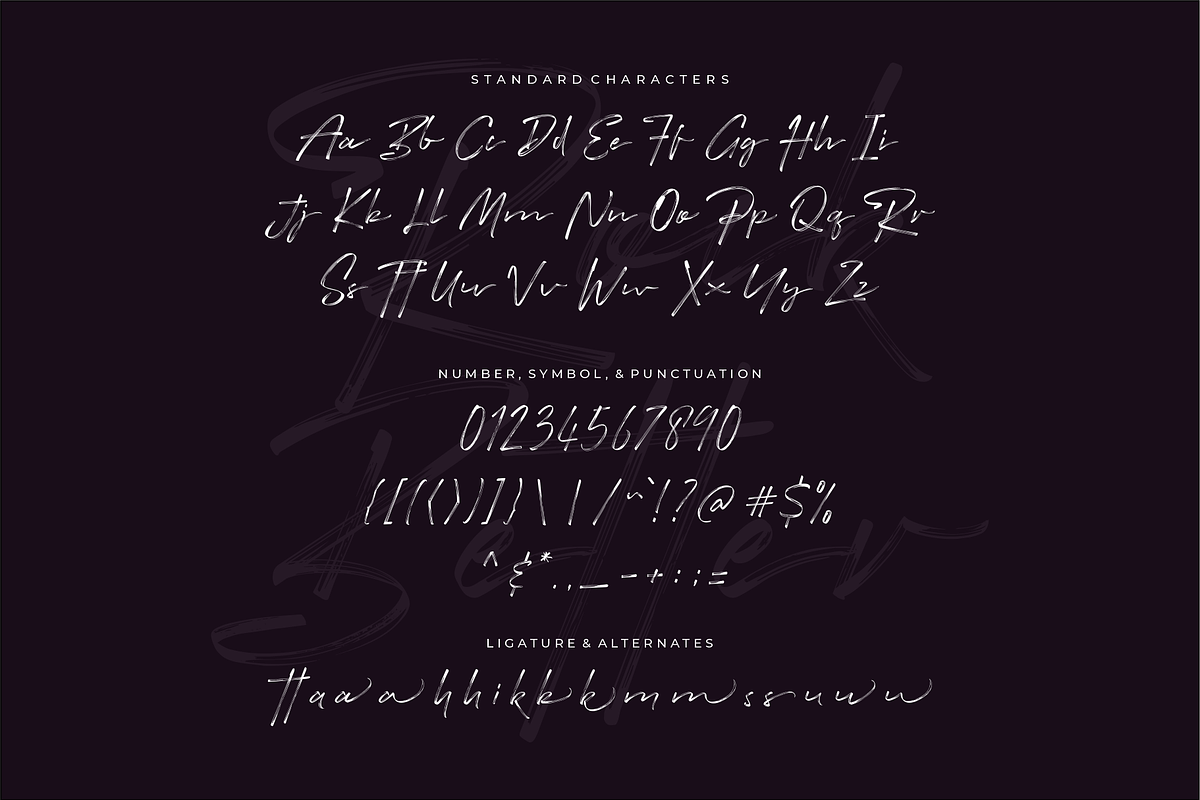 STANDARD CHARACTERS
Aa Bb Cc Dd Ee Ff Gg Hh Ii
Jj Kk Ll Mm Nn Oo Pp Qq Rr
Ss Tt Uu Vv Ww Xx Yy Zz
NUMBER, SYMBOL, & PUNCTUATION
01234567890
{[(⟨⟩)]}\ | / ~`!?@ #$%
^ &*.,_ - + : ; =
LIGATURE & ALTERNATES
tt a a a h h i k k k m m s s u u u
Rock
Better